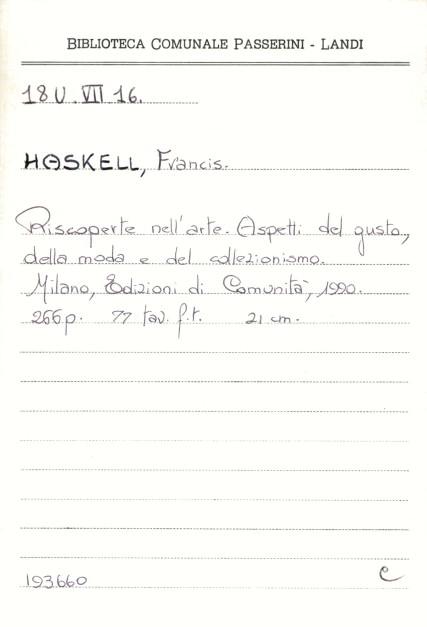 BIBLIOTECA COMUNALE PASSERINI - LANDI
18 U. VII 16.
HASKELL, Francis.
Riscoperte nell'arte. Aspetti del gusto,
della moda e del collezionismo.
Milano, Edizioni di Comunità, 1990.
266 p. 77 tav. f.t. 21 cm.
193660
e